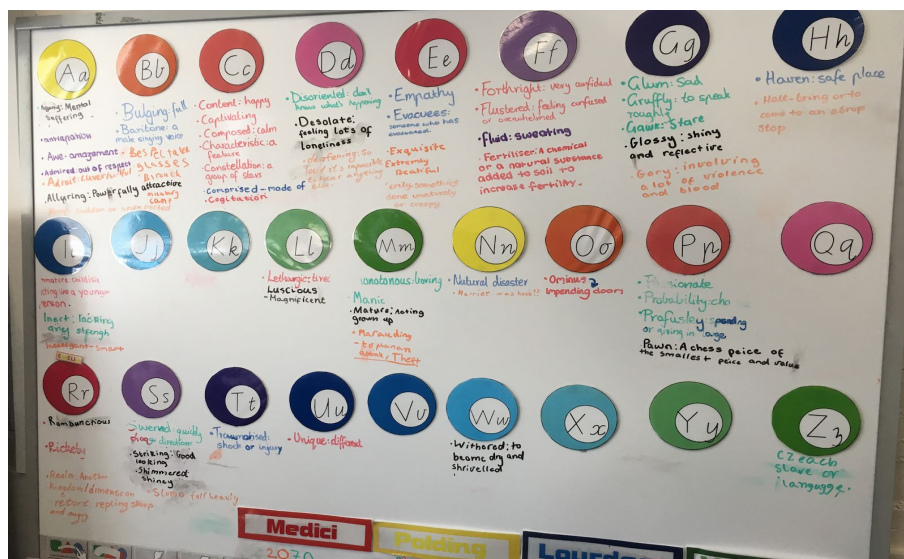 Aa
Mental
Suffering
antiquation
Awe: amazement
Admired out of respect
Alluring: Powerfully attractive
Bb
Bulging: full
Baritone: a
male singing voice
Bespeltake
glasses
military
camp
Cc
Content: happy
Captivating
Composed: calm
Characteristic: a
feature
Constellation: a
group of stars
Comprised - mode of
Cogitation
Dd
Disoriented: don't
know what's happening
Desolate:
feeling lots of
loneliness
Deafening: So
loud it's impossible
to hear anything
else.
Ee
Empathy
Evacuees:
someone who has
evacuated.
Exquisite
Extremly
Beatiful
something
done unaturely
or creepy
Ff
Forthright: very confident
Flustered: feeling confused
or overwhelmed
fluid: sweating
Fertiliser: A chemical
or a natural substance
added to soil to
increase fertility.
Gg
Glum: Sad
Gruffly: to speak
roughly
Gawe: Stare
Glossy: shiny
and reflective
Gory: involving
a lot of violence
and blood
Hh
Haven: safe place
Halt-bring or to
come to an abrup
stop
childish
acting like a younger
person.
Inert: lacking
any strength
smart
Jj
Kk
Ll
Lethargic: tire
Luscious
-Magnificent
Mm
onotonous: boring
Manic
Mature: acting
grown up
Marauding
Theft
Nn
Natural disaster
Oo
Ominus
impending doom
Pp
Passionate
Probability: cha
Profusley: spending
or giving in large
Pawn: A chess peice of
the smallest peice and value
Qq
Rr
Rambunctious
Rickety
Realm: Another
kingdom/dimension
retort repling sharp
and angry
Ss
Swerved: quickly
change direction
Striking: Good
looking
Shimmered
shiney
full heavily
Tt
Traumatised:
shock or injury
Uu
Unique: different
Vv
Ww
Withered: to
become dry and
shrivelled
Xx
Yy
Zz
Czeach
slave or
language.
Medici
Polding
Lourdes
2070